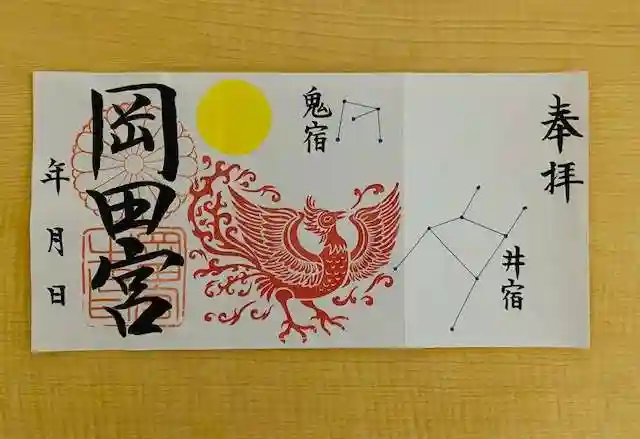 奉拝
井宿
鬼宿
岡田宮
年 月 日